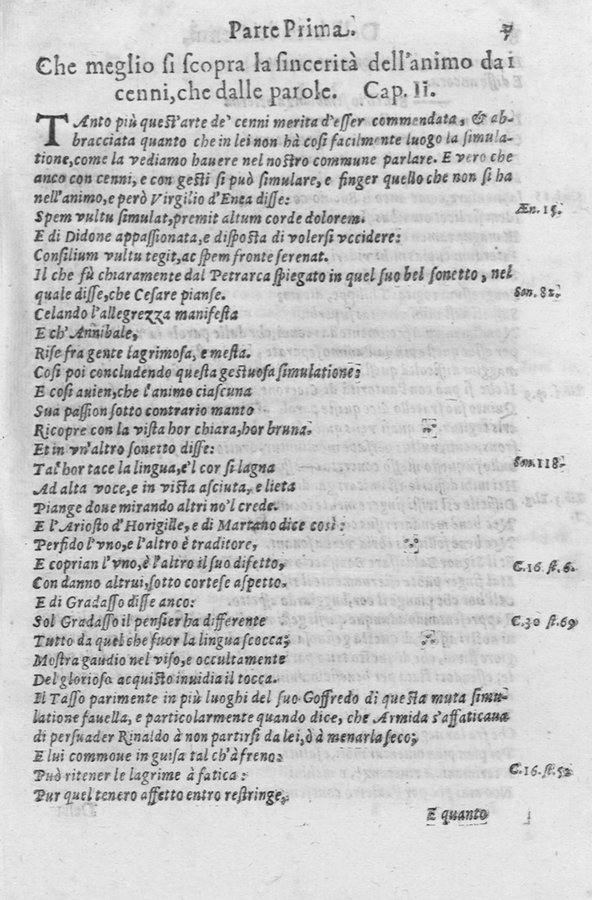 Parte Prima. 7
Che meglio si scopra la sincerità dell'animo da i
cenni, che dalle parole. Cap. Ii.
TAnto più quest'arte de' cenni merita d'esser commendata, & ab-
bracciata quanto che in lei non hà così facilmente luogo la simula-
tione, come la vediamo hauere nel nostro commune parlare. E vero che
anco con cenni, e con gesti si può simulare, e finger quello che non si ha
nell'animo, e però Virgilio d'Enea disse:
Spem vultu simulat, premit altum corde dolorem. Æn. 15.
E di Didone appassionata, e disposta di volersi vccidere:
Consilium vultu tegit, ac spem fronte serenat.
Il che fù chiaramente dal Petrarca spiegato in quel suo bel sonetto, nel
quale disse, che Cesare pianse. Son. 82.
Celando l'allegrezza manifesta
E ch' Annibale,
Rise fra gente lagrimosa, e mesta.
Cosi poi concludendo questa gestuosa simulatione:
E cosi auien, che l'animo ciascuna
Sua passion sotto contrario manto
Ricopre con la vista hor chiara, hor bruna.
Et in vn'altro sonetto disse:
Tal hor tace la lingua, e'l cor si lagna Son. 118.
Ad alta voce, e in vista asciuta, e lieta
Piange doue mirando altri no'l crede.
E l'Ariosto d'Horigille, e di Martano dice così:
Perfido l'vno, e l'altro è traditore,
E coprian l'vno, è l'altro il suo difetto, C. 16 st. 6.
Con danno altrui, sotto cortese aspetto.
E di Gradasso disse anco:
Sol Gradasso il pensier ha differente C. 30 st. 69
Tutto da quel che fuor la lingua scocca;
Mostra gaudio nel viso, e occultamente
Del glorioso acquisto inuidia il tocca.
Il Tasso parimente in più luoghi del suo Goffredo di questa muta simu-
latione fauella, e particolarmente quando dice, che Armida s'affaticaua
di persuader Rinaldo à non partirsi da lei, ò à menarla seco;
E lui commoue in guisa tal ch'à freno:
Può ritener le lagrime à fatica: C. 16. st. 52
Pur quel tenero affetto entro restringe,
E quanto